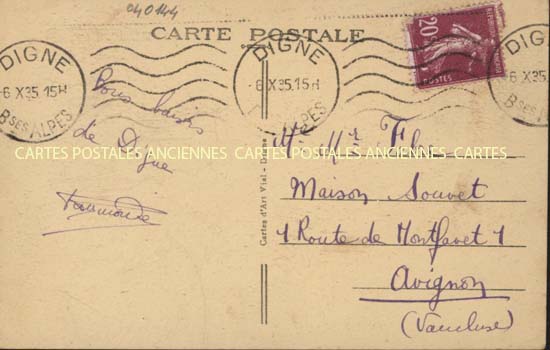 040144
CARTE POSTALE
DIGNE
6 X 35 15H
Bses ALPES
DIGNE
6 X 35 15H
Bses ALPES
20c
POSTES
Bons baisers
de Digne
CARTES POSTALES ANCIENNES CARTES POSTALES ANCIENNES CARTES
Cartes d'Art Vial - Digne
Maison Souvet
1 Route de Montfavet 1
Avignon
(Vaucluse)